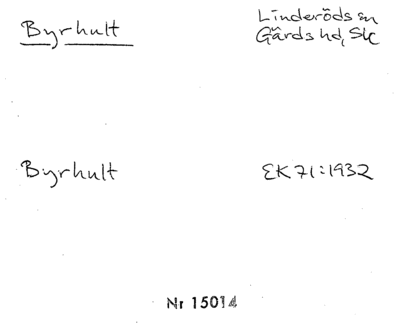 Byrhult
Linderöds sn
Gärds hd, Sk
Byrhult
EK 71:1932
Nr 15014